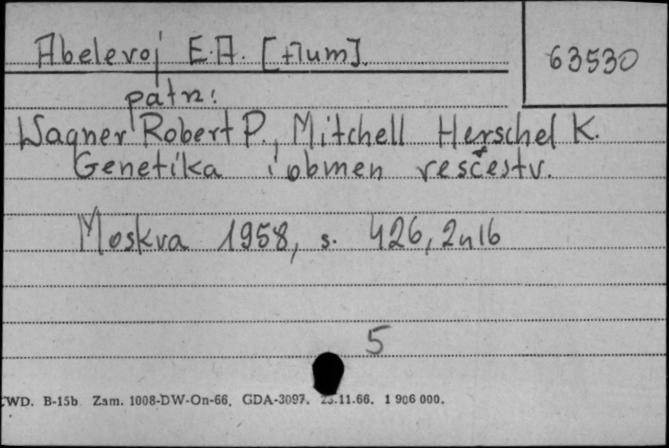 Abelevoj E.A. [tłum].
63530
patrz:
Wagner Robert P., Mitchell Herschel K.
Genetika i obmen veščestv.
Moskva 1958, s. 426, 2nlb
5
CWD. B-15b Zam. 1008-DW-On-66. GDA-3097. 23.11.66. 1 906 000.